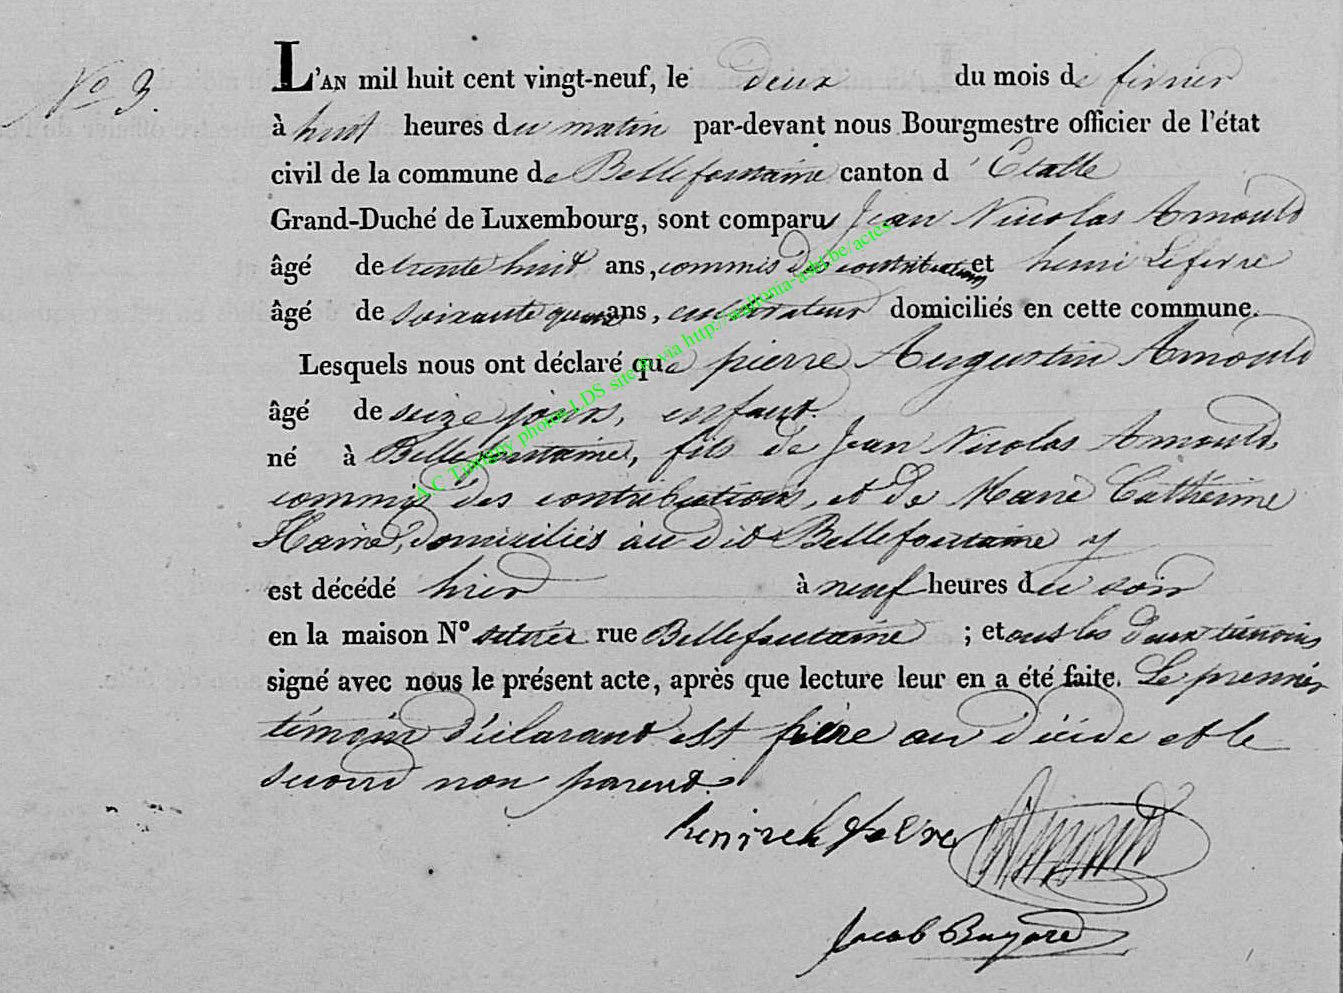 No 3.
L'AN mil huit cent vingt-neuf, le deux du mois de fivrier
à huit heures du matin par-devant nous Bourgmestre officier de l'état
civil de la commune de Bellefontaine canton d'Etalle
Grand-Duché de Luxembourg, sont comparus Jean Nicolas Arnould
âgé de trente huit ans, commis des contributions et henri Lefevre
âgé de soixante ans, cultivateur domiciliés en cette commune.
Lesquels nous ont déclaré que pierre Augustin Arnould
âgé de seize jours, enfant
né à Bellefontaine, fils de Jean Nicolas Arnould,
commis des contributions, et de Marie Cathérine
Hainé, domiciliés au dit Bellefontaine y
est décédé hier à neuf heures du soir
en la maison No rue Bellefontaine ; et ont les deux témoins
signé avec nous le présent acte, après que lecture leur en a été faite. Le premier
témoin déclarant est père au décédé et le
second non parent.
henri Arnould
Jacob Buzard
A C Tintigny photos LDS site © via http://wallonia-asbl.be/actes